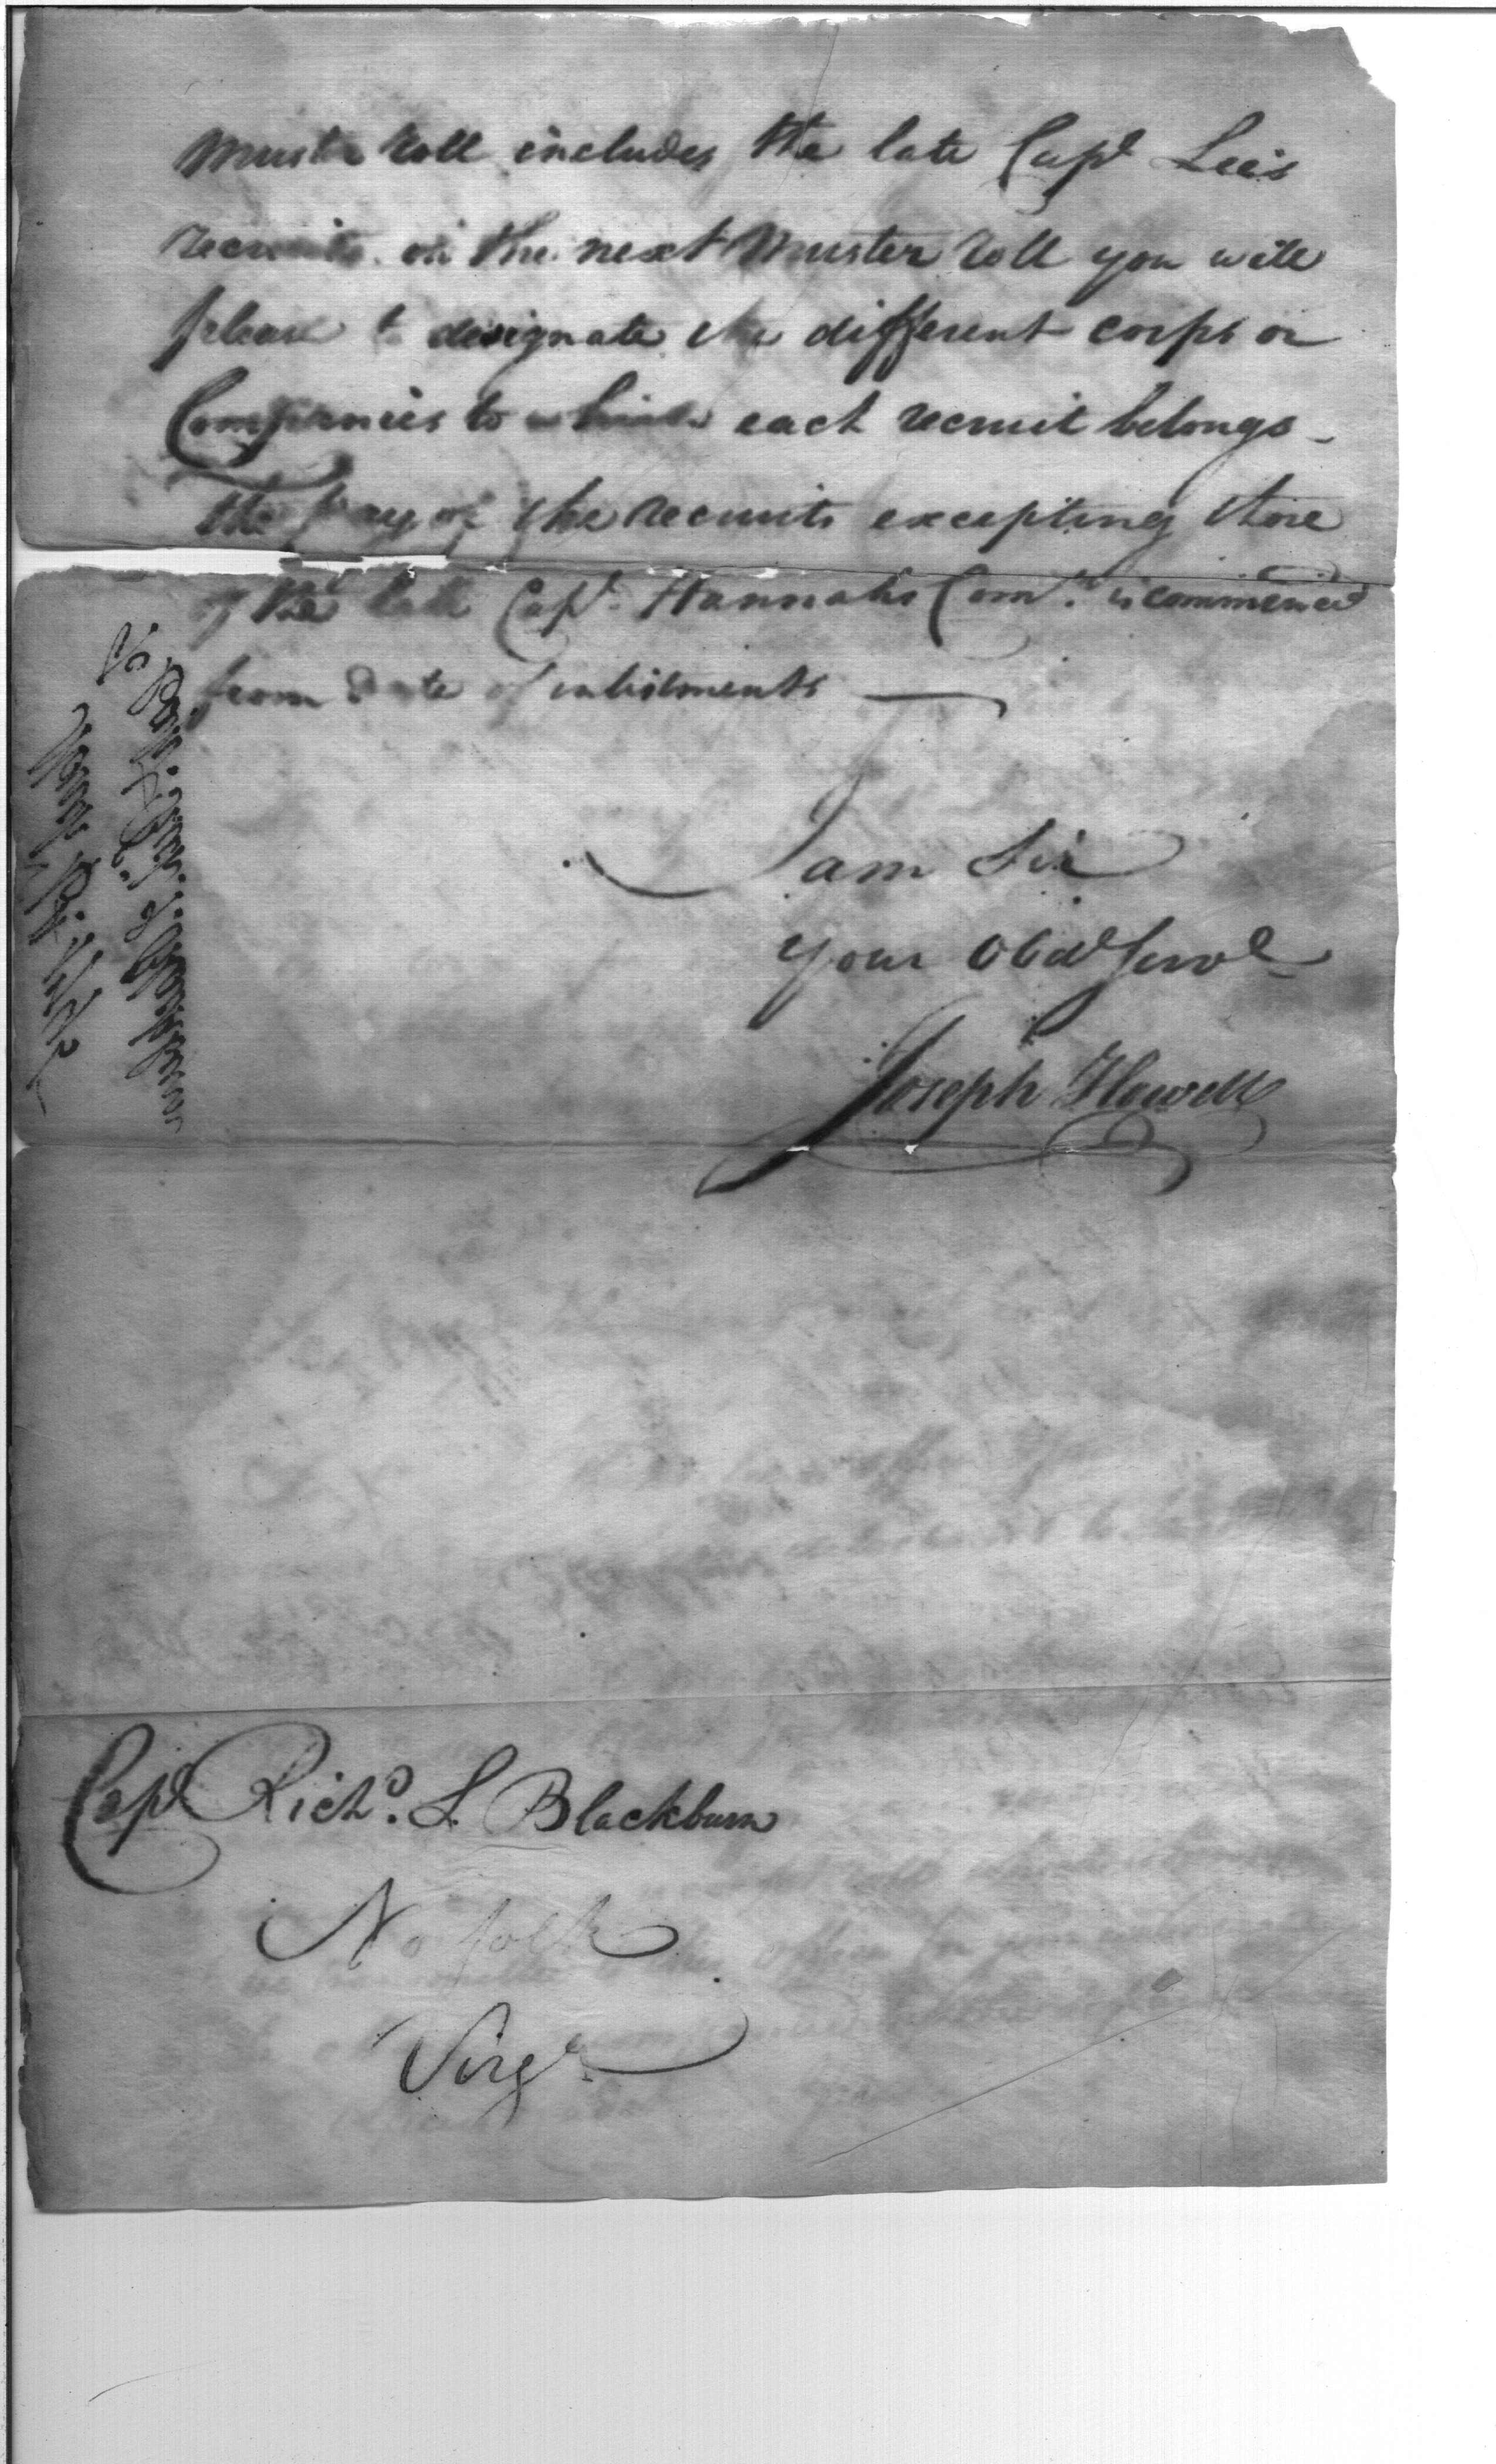 muster roll includes the late Capt Lee's
recruits on the next muster roll you will
please to designate the different corps or
Companies to which each recruit belongs -
the pay of the recruits excepting those
of the late Capt. Hannahs Comy. is commenced
from date of inlistments —
I am Sir
your Obed Servt
Joseph Howell
Capt Richd. S. Blackburn
Norfolk
Virga